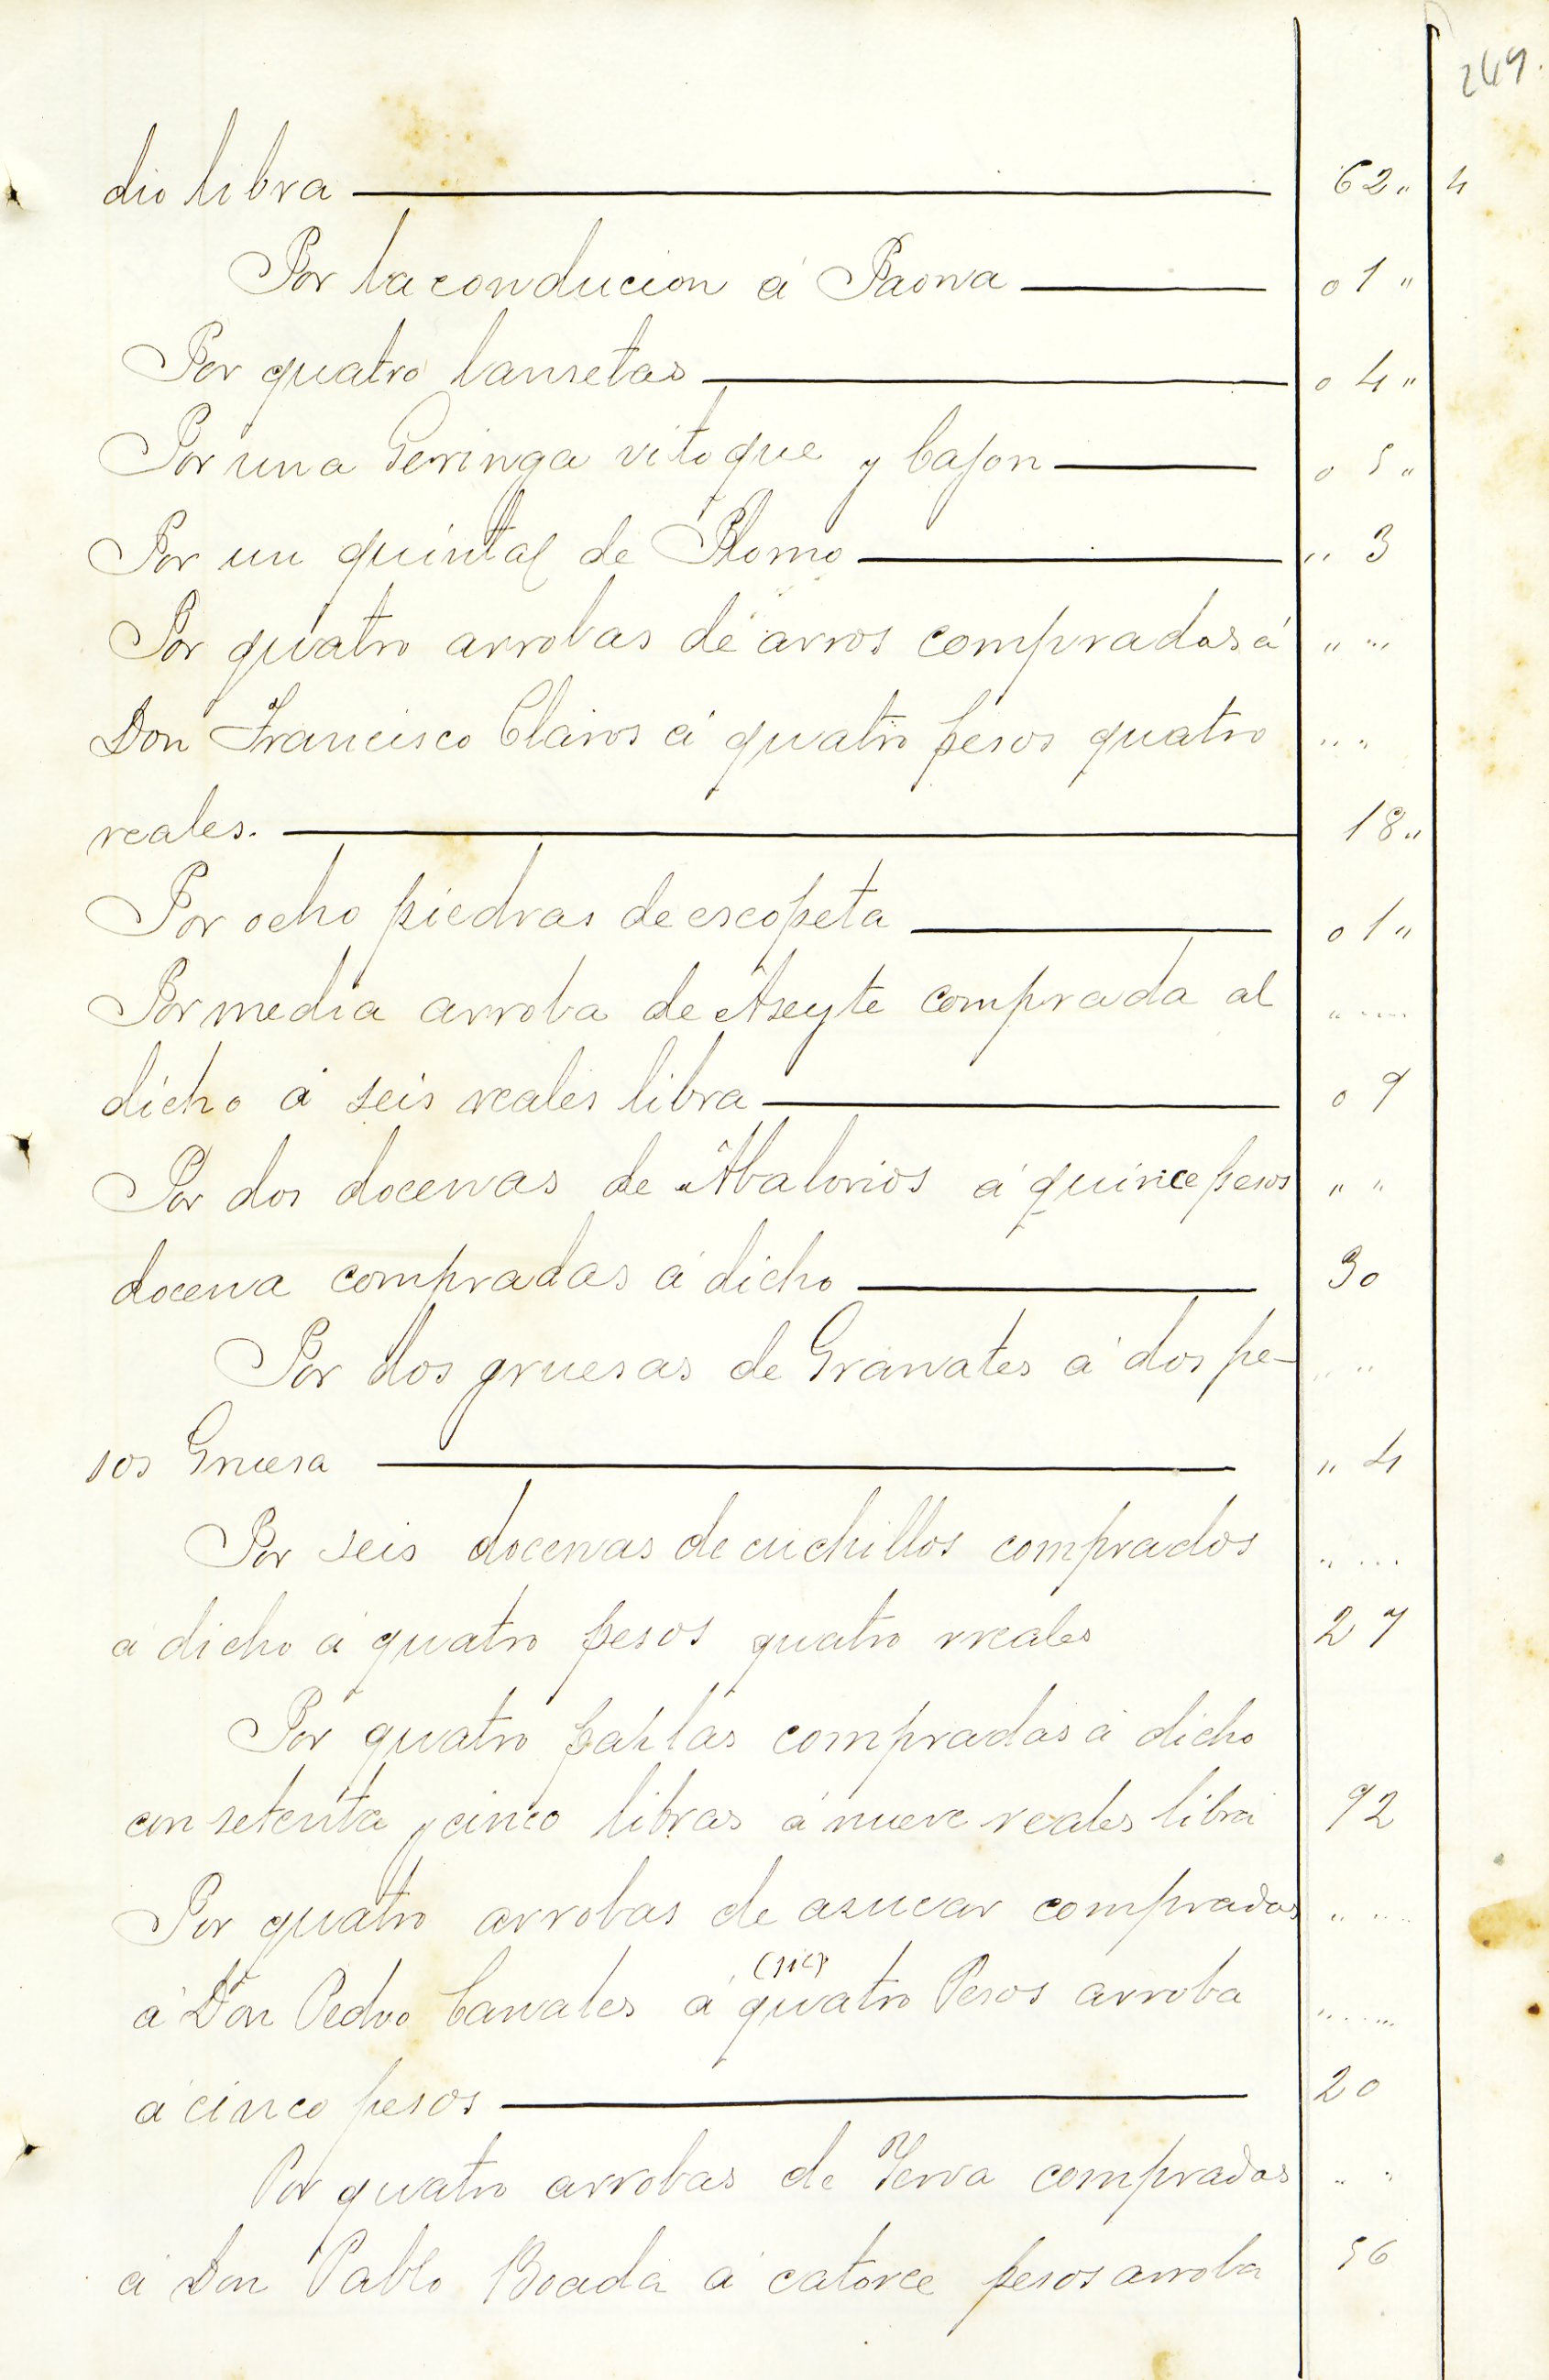 249.
dio libra — 62 „ 4
Por la conducion á Paona — 01 „
Por quatro lansetas — 04 „
Por una Geringa vitoque y bajon — 05 „
Por un quintal de Plomo — „ 3
Por quatro arrobas de arros compradas á „ „
Don Francisco Claros á quatro pesos quatro „ „
reales. — 18 „
Por ocho piedras de escopeta — 01 „
Por media arroba de Aseyte comprada al „ „
dicho á seis reales libra — 09
Por dos docenas de Abalorios á quince pesos „ „
docena compradas á dicho — 30
Por dos gruesas de Granates á dos pe- „ „
sos Gruesa — „ 4
Por seis docenas de cuchillos comprados „ „
a dicho á quatro pesos quatro rreales 27
Por quatro compradas á dicho
con setenta y cinco libras á nueve reales libra 92
Por quatro arrobas de asucar compradas „ „
(sic)
á Don Pedro Canales á quatro Pesos arroba „ „
á cinco pesos — 20
Por quatro arrobas de Yerva compradas „ „
á Don Pablo Boada á catorce pesos arroba 56